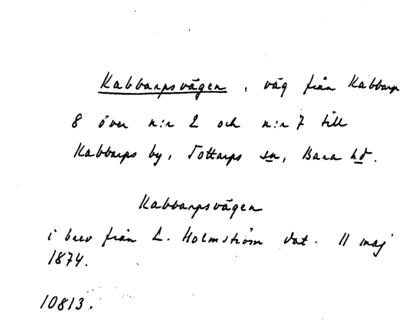 Kabbarpsvägen, väg från Kabbarp
8 över n:r 2 och n:r 7 till
Kabbarps by, Tottarps sn, Bara hd.
Kabbarpsvägen
i brev från L. Holmström dat. 11 maj
1874.
10813.